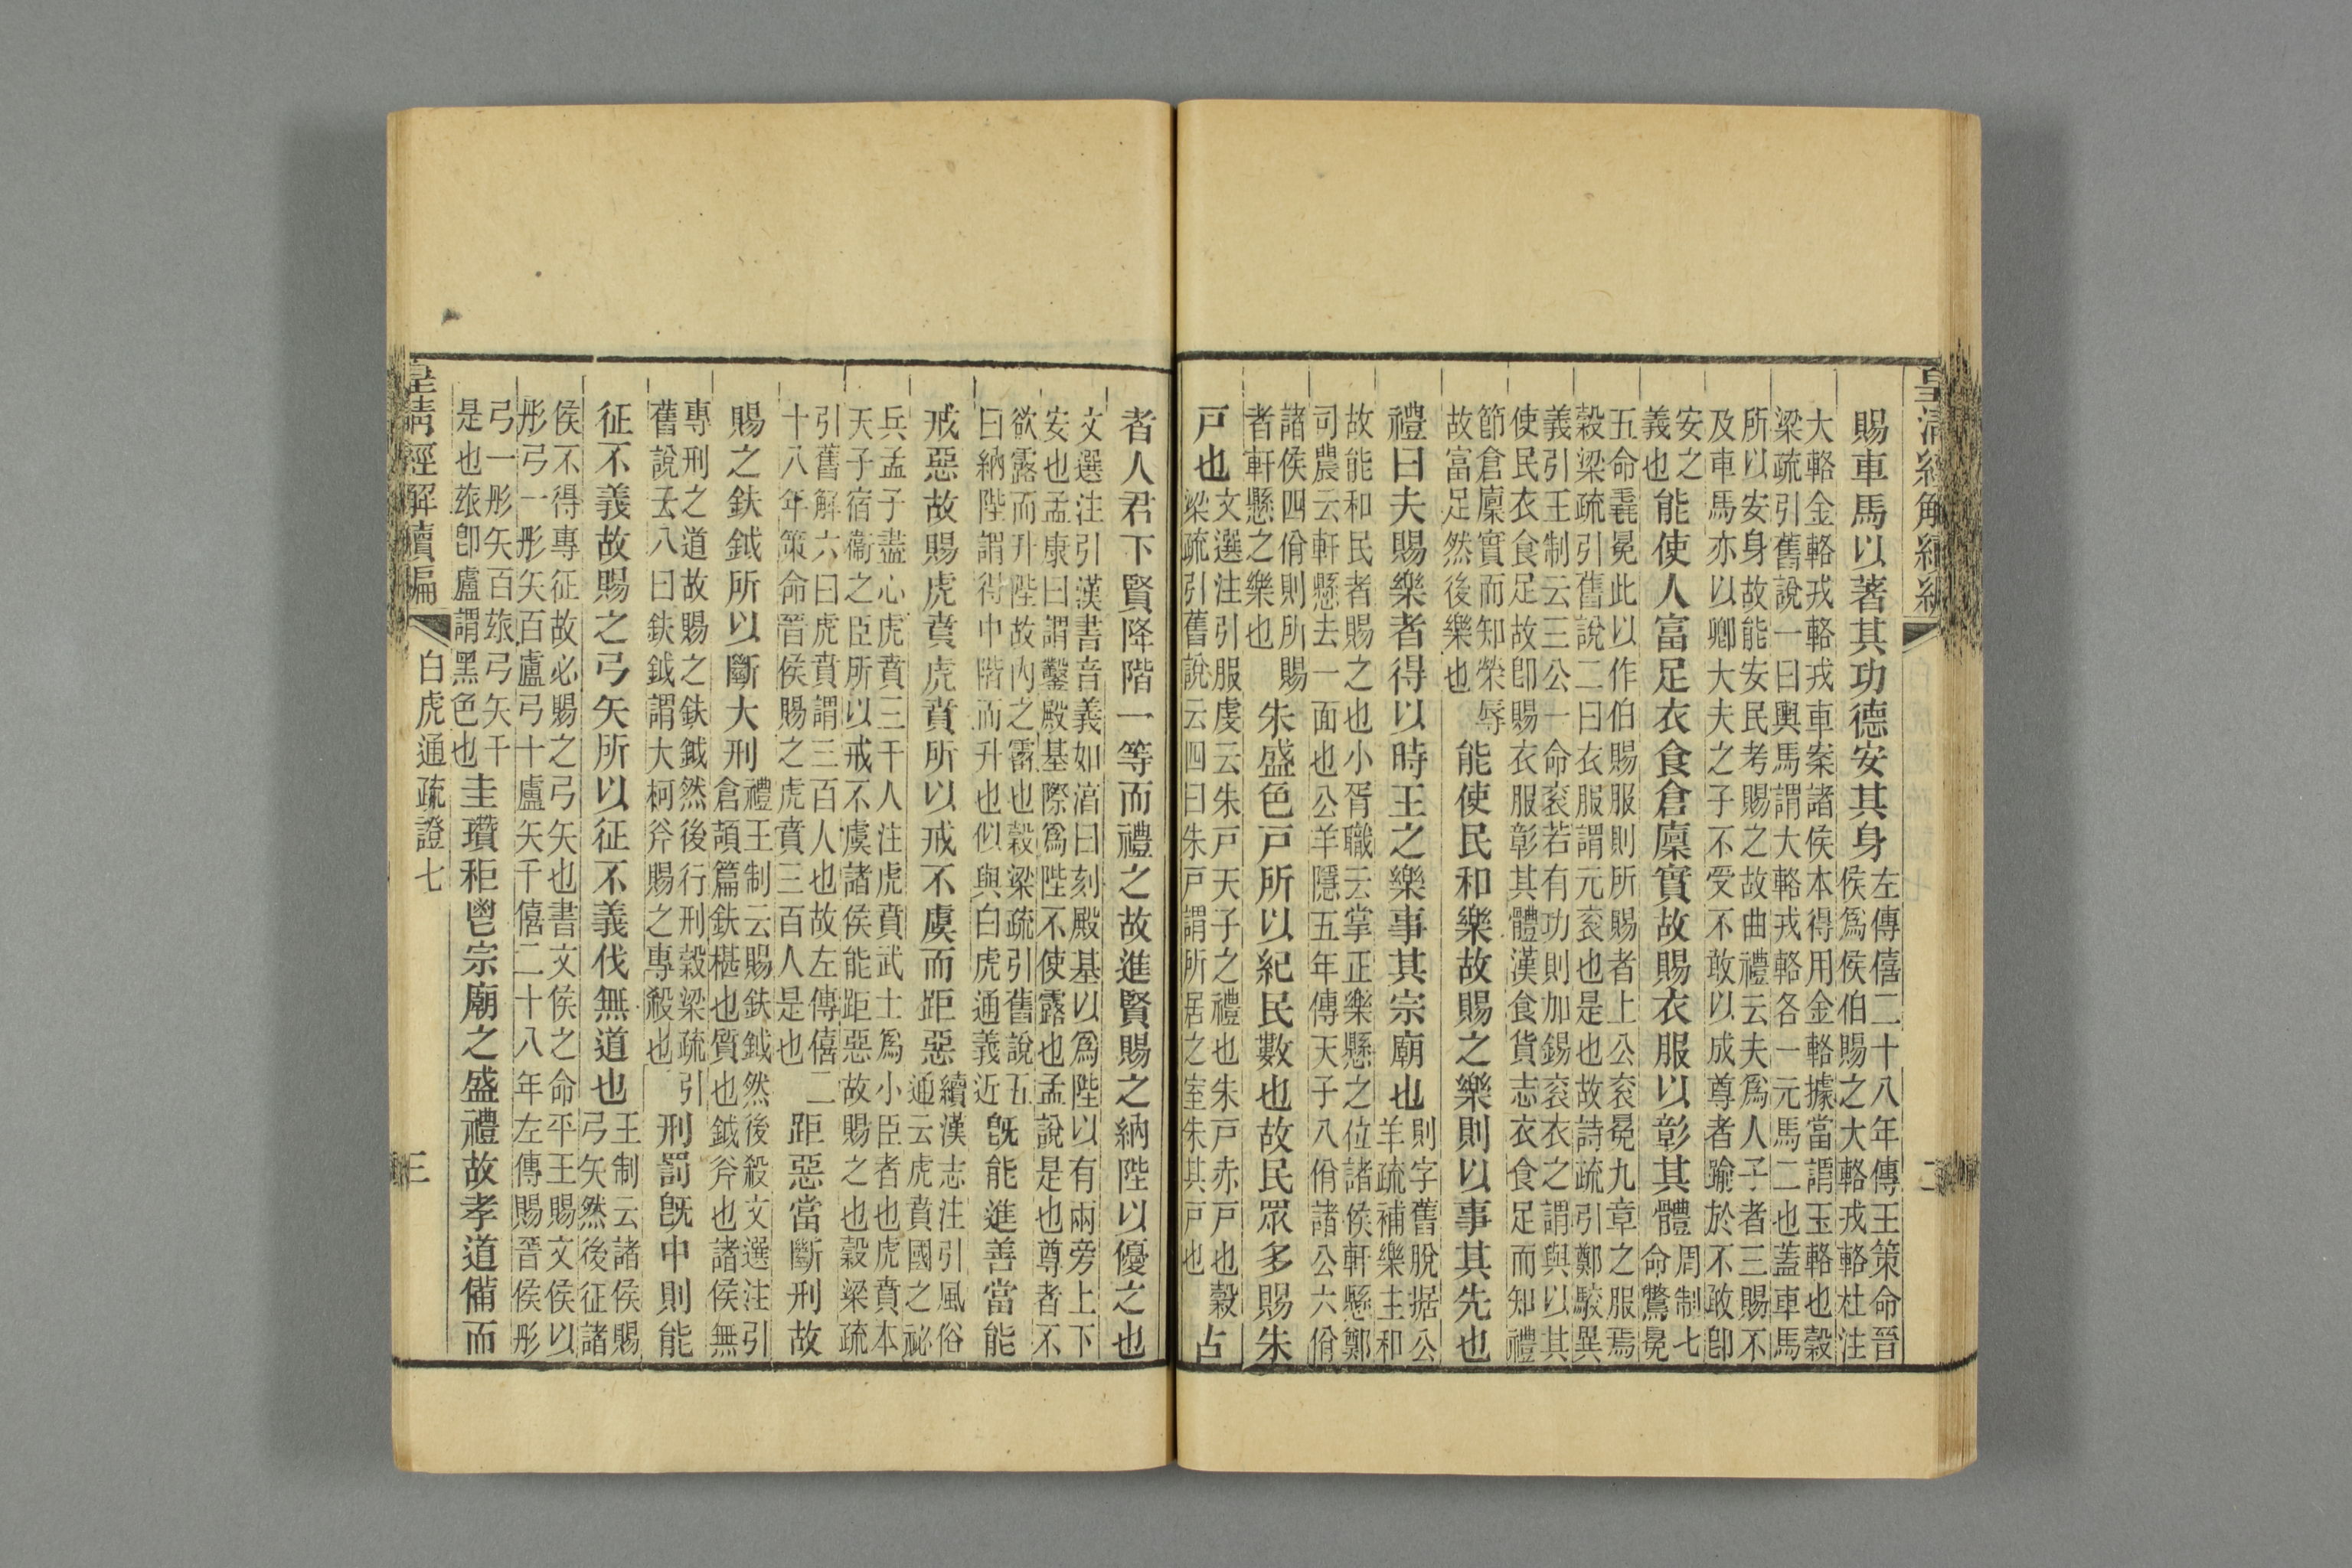 皇清經解續編 二
賜車馬以著其功德安其身
左傳僖二十八年傳王策命晉
侯爲侯伯賜之大輅戎輅杜注
大輅金輅戎輅戎車案諸侯本得用金輅據當謂玉輅也穀
梁疏引舊說一曰輿馬謂大輅戎輅各一元馬二也蓋車馬
所以安身故能安民考賜之故曲禮云夫爲人子者三賜不
及車馬亦以卿大夫之子不受不敢以成尊者踰於不敢卽
安之
義也
能使人富足衣食倉廩實故賜衣服以彰其體
周制七
命鷩冕
五命毳冕此以作伯賜服則所賜者上公衮冕九章之服焉
穀梁疏引舊說二曰衣服謂元衮也是也故詩疏引鄭駮異
義引王制云三公一命衮若有功則加錫衮衣之謂與以其
使民衣食足故卽賜衣服彰其體漢食貨志衣食足而知禮
節倉廩實而知榮辱
故富足然後樂也
能使民和樂故賜之樂則以事其先也
禮曰夫賜樂者得以時王之樂事其宗廟也
則字舊脫据公
羊疏補樂主和
故能和民者賜之也小胥職云掌正樂懸之位諸侯軒懸鄭
司農云軒懸去一面也公羊隱五年傳天子八佾諸公六佾
諸侯四佾則所賜
者軒懸之樂也
朱盛色戶所以紀民數也故民眾多賜朱
戶也
文選注引服虔云朱戶天子之禮也朱戶赤戶也穀
梁疏引舊說云四曰朱戶謂所居之室朱其戶也
古
者人君下賢降階一等而禮之故進賢賜之納陛以優之也
文選注引漢書音義如湻曰刻殿基以爲陛以有兩旁上下
安也孟康曰謂鑿殿基際爲陛不使露也孟說是也尊者不
欲露而升陛故內之霤也穀梁疏引舊說五
曰納陛謂得中階而升也似與白虎通義近
旣能進善當能
戒惡故賜虎賁虎賁所以戒不虞而距惡
續漢志注引風俗
通云虎賁國之祕
兵孟子盡心虎賁三千人注虎賁武士爲小臣者也虎賁本
天子宿衞之臣所以戒不虞諸侯能距惡故賜之也穀梁疏
引舊解六曰虎賁謂三百人也故左傳僖二
十八年策命晉侯賜之虎賁三百人是也
距惡當斷刑故
賜之鈇鉞所以斷大刑
禮王制云賜鈇鉞然後殺文選注引
倉頡篇鈇椹也質也鉞斧也諸侯無
專刑之道故賜之鈇鉞然後行刑穀梁疏引
舊說云八曰鈇鉞謂大柯斧賜之專殺也
刑罰旣中則能
征不義故賜之弓矢所以征不義伐無道也
王制云諸侯賜
弓矢然後征諸
侯不得專征故必賜之弓矢也書文侯之命平王賜文侯以
彤弓一彤矢百盧弓十盧矢千僖二十八年左傳賜晉侯彤
弓一彤矢百玈弓矢千
是也玈卽盧謂黑色也
圭瓚秬鬯宗廟之盛禮故孝道備而
皇清經解續編 白虎通疏證七 三